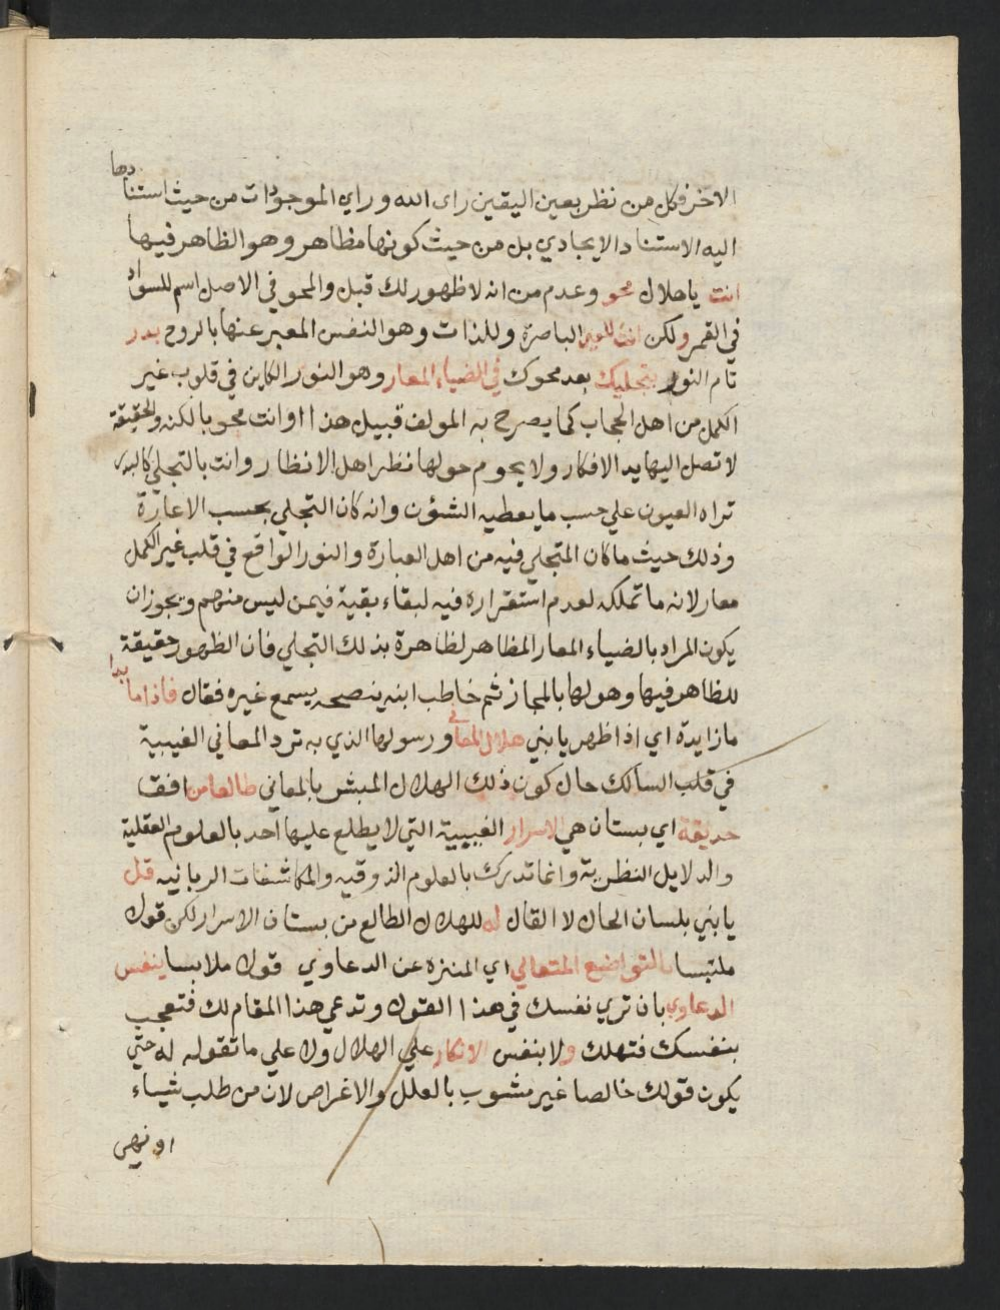 الاخر فكل من نظر بعين اليقين راى الله وراي الموجودات من حيث استنادها
اليه الاستناد الايجادي بل من حيث كونها مظاهر وهو الظاهر فيها
انت ياهلال محو وعدم من انه لاظهور لك قبل والمحو في الاصل اسم للسواد
في القمر ولكن انت للعين الباصرة وللذات وهو النفس المعبر عنها بالروح بدر
تام النور بتجليك بعد محوك في الضياء المعار وهو النور الكاين في قلوب غير
الكمل من اهل الحجاب كما يصرح به المولف قبيل هذا او انت محو بالكنه والحقيقة
لا تصل اليها يد الافكار ولا يحوم حولها نظر اهل الانظار وانت بالتجلي كالبدر
تراه العيون علي حسب ما يعطيه الشؤن وانه كان التجلي بحسب الاعارة
وذلك حيث ما كان المتجلي فيه من اهل العبارة والنور الواقع في قلب غير الكمل
معار لانه ما تملكه لعدم استقراره فيه لبقاء بقية فيمن ليس منهم ويجوز ان
يكون المراد بالضياء المعار المظاهر لظاهرة بذلك التجلي فان الظهور حقيقة
للظاهر فيها وهو لها بالمجاز ثم خاطب ابنه ينصحه يسمع غيره فقال فاذا ما بدا
ما زايدة اي اذا ظهر يا بني هلال المعاني ورسولها الذي به ترد المعاني الغيبية
في قلب السالك حال كون ذلك الهلال المبشر بالمعاني طالعا من افق
حديقة اي بستان هي الاسرار الغيبية التي لا يطلع عليها احد بالعلوم العقلية
والدلايل النظرية وانما تدرك بالعلوم الذوقيه والمكاشفات الربانيه قل
يا بني بلسان الحال لا القال له للهلال الطالع من بستان الاسرار لكن قولا
ملتبسا بالتواضع المتعالي اي المنزه عن الدعاوي قولا ملابسا بنفس
الدعاوي بان تري نفسك في هذا القول وتدعي هذا المقام لك فتعجب
بنفسك فتهلك ولا بنفس الانكار علي الهلال ولا علي ما تقوله له حتي
يكون قولك خالصا غير مشوب بالعلل والاغراض لان من طلب شياء
او نهي